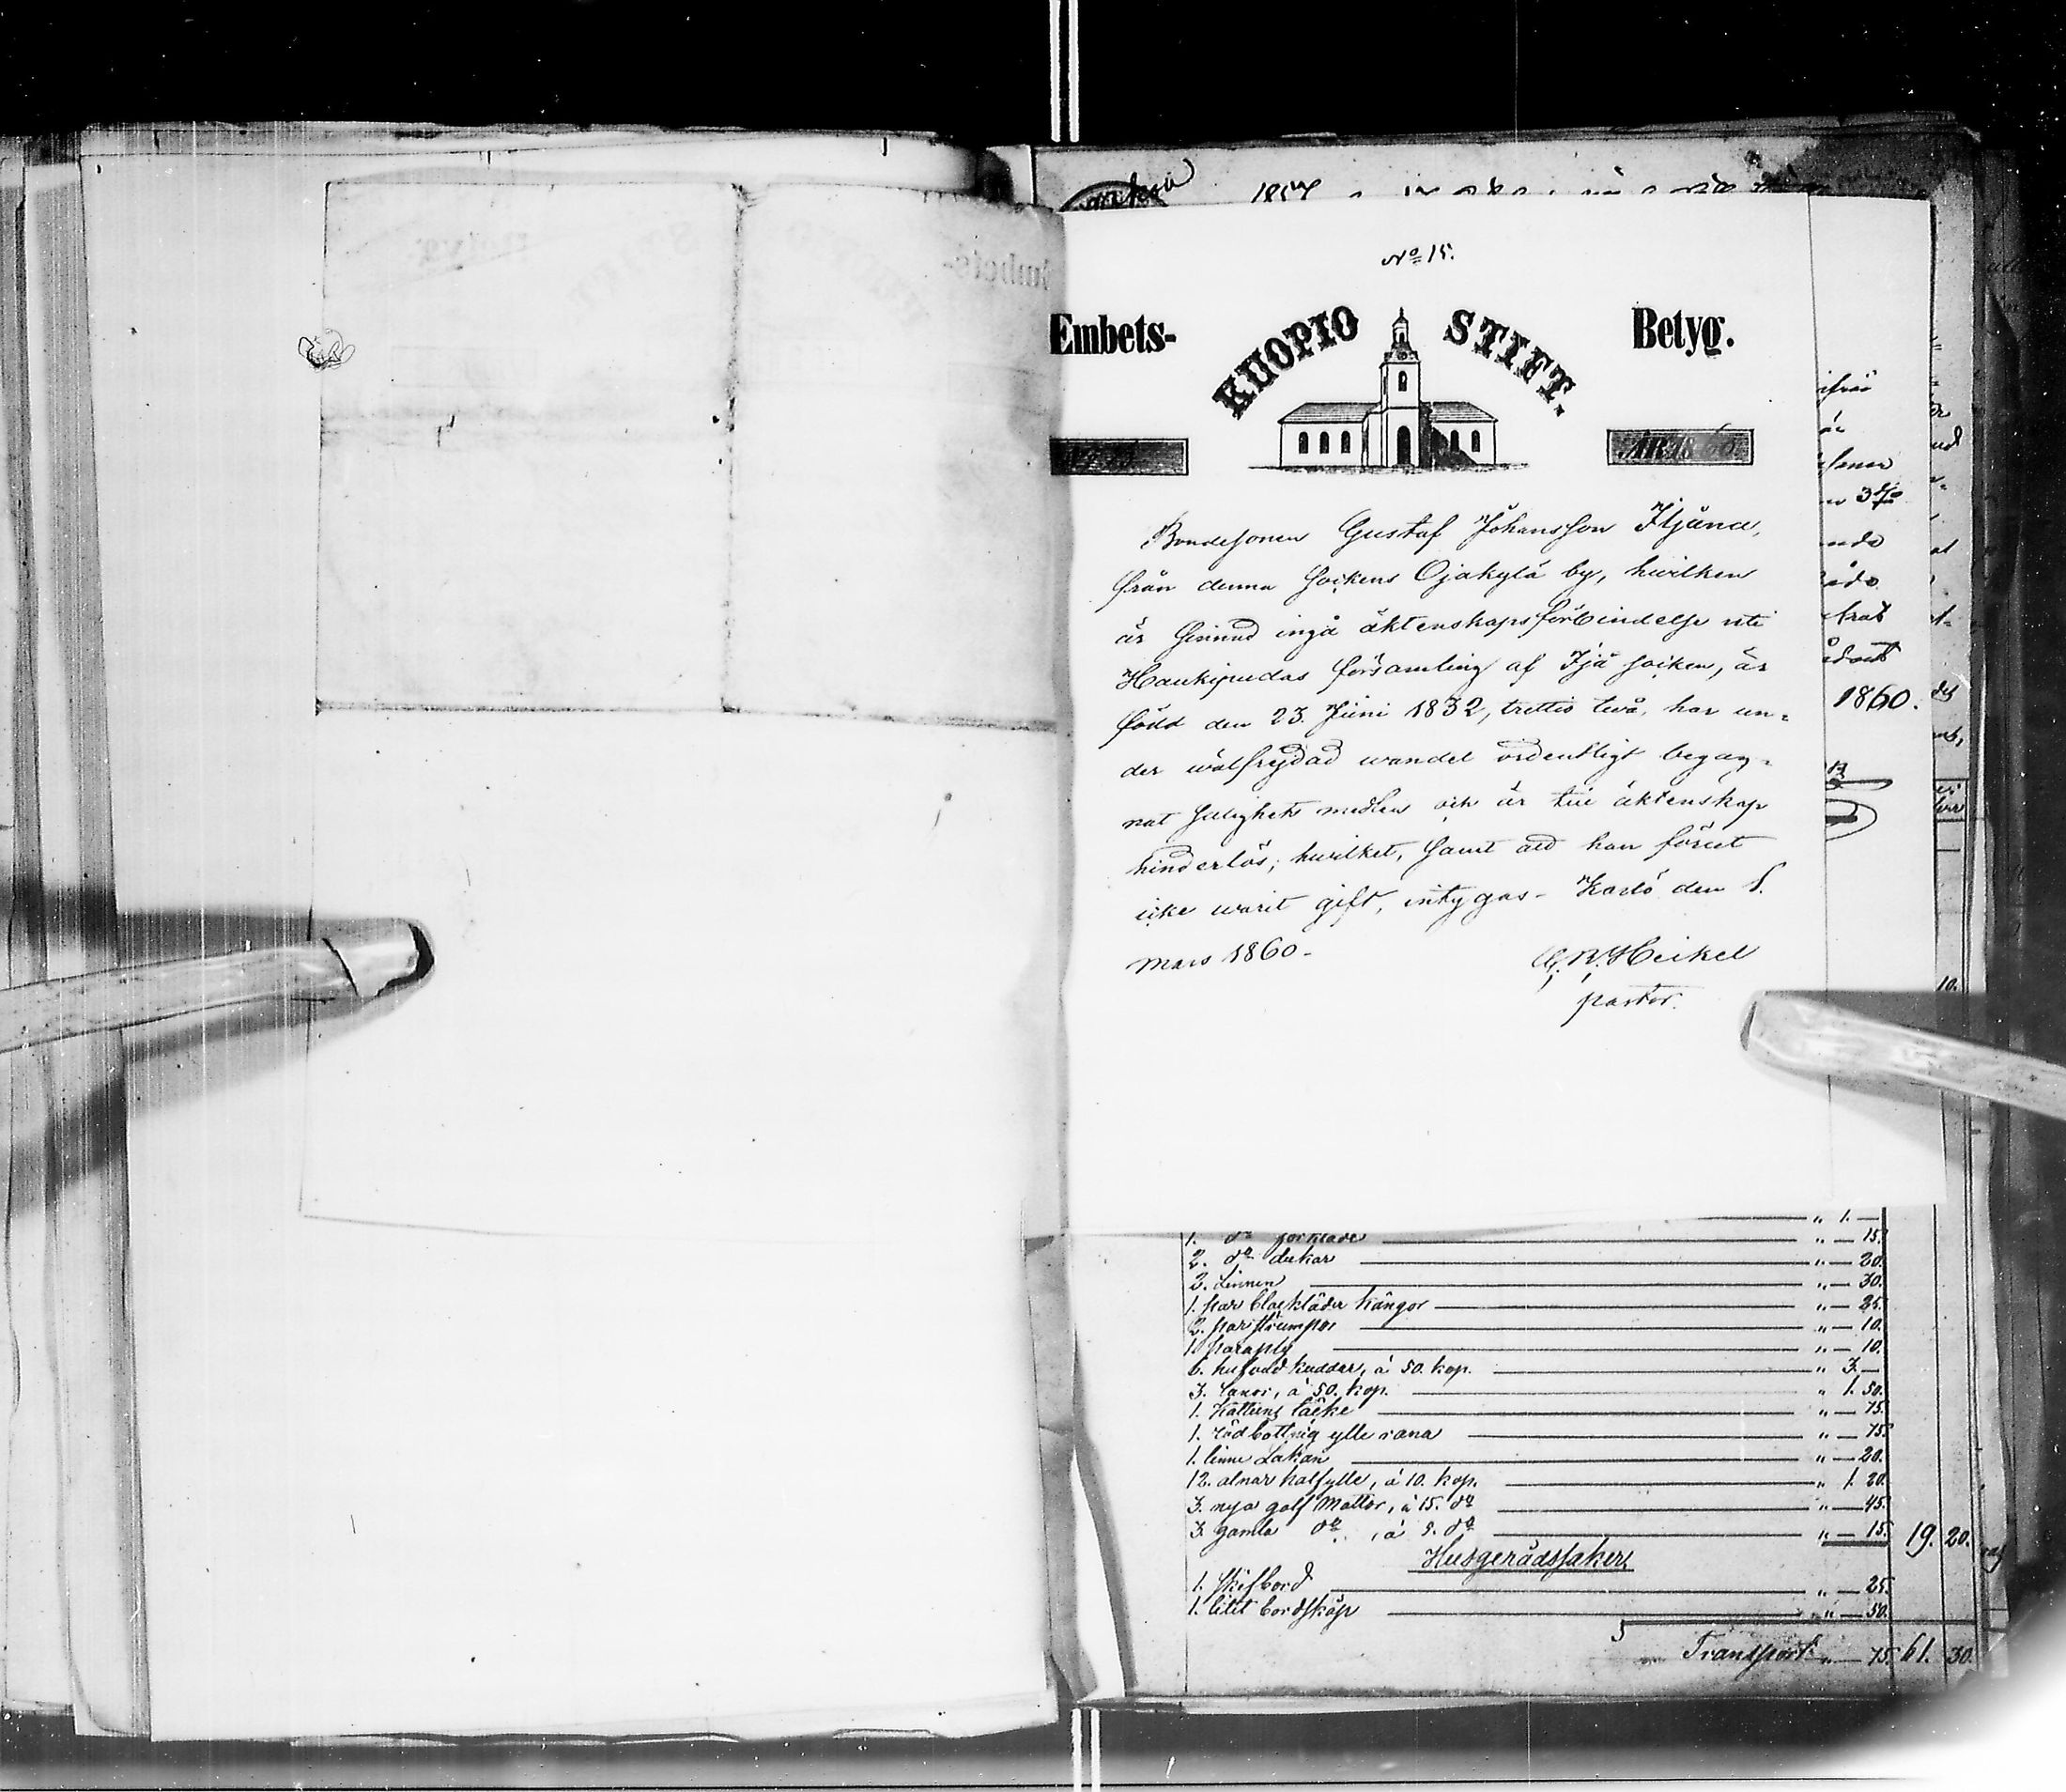 No 15.
Embets- KUOPIO STIFT. Betyg.
ÅR 1860.
Bondesonen Gustaf Johansson Iljana,
från denna Sockens Ojakylä by, hvilken
är sinnad ingå äktenskapsförbindelse uti
Haukipudas församling af Ijå socken, är
född den 23 Juni 1832, trettio två, har un-
der wälfrejdad wandel ordentligt begag-
nat salighets medlen och är till äktenskap
hinderlös; hwilket, samt att han förut
icke warit gift, intygas - Karlö den 8.
Mars 1860.
Heikel
pastor.
ifrån
1860.
" 1. —
1. do förkläde " — 15.
2. do dukar " — 20.
2. Linnen " — 30.
1. par blackläder kängor " — 25.
2. par strumpor " — 10.
1. paraply " — 10.
6. hufvud kuddar, á 50. kop. " 3. —
3. Lanor, á 50. kop. " 1. 50.
1. Kattuns täcke " — 75.
1. rödbottnig ylle rana " — 75.
1. linne Lakan " — 20.
12. alnar halfylle, á 10. kop. " 1. 20.
3. nya golf Mattor, á 15. do " — 45.
3. gamla do , á 5. do " — 15. 19. 20.
Husgerådssaker
1. skifbord " — 25.
1. litet bordskåp " — 50.
Transport " — 75. 61. 30.